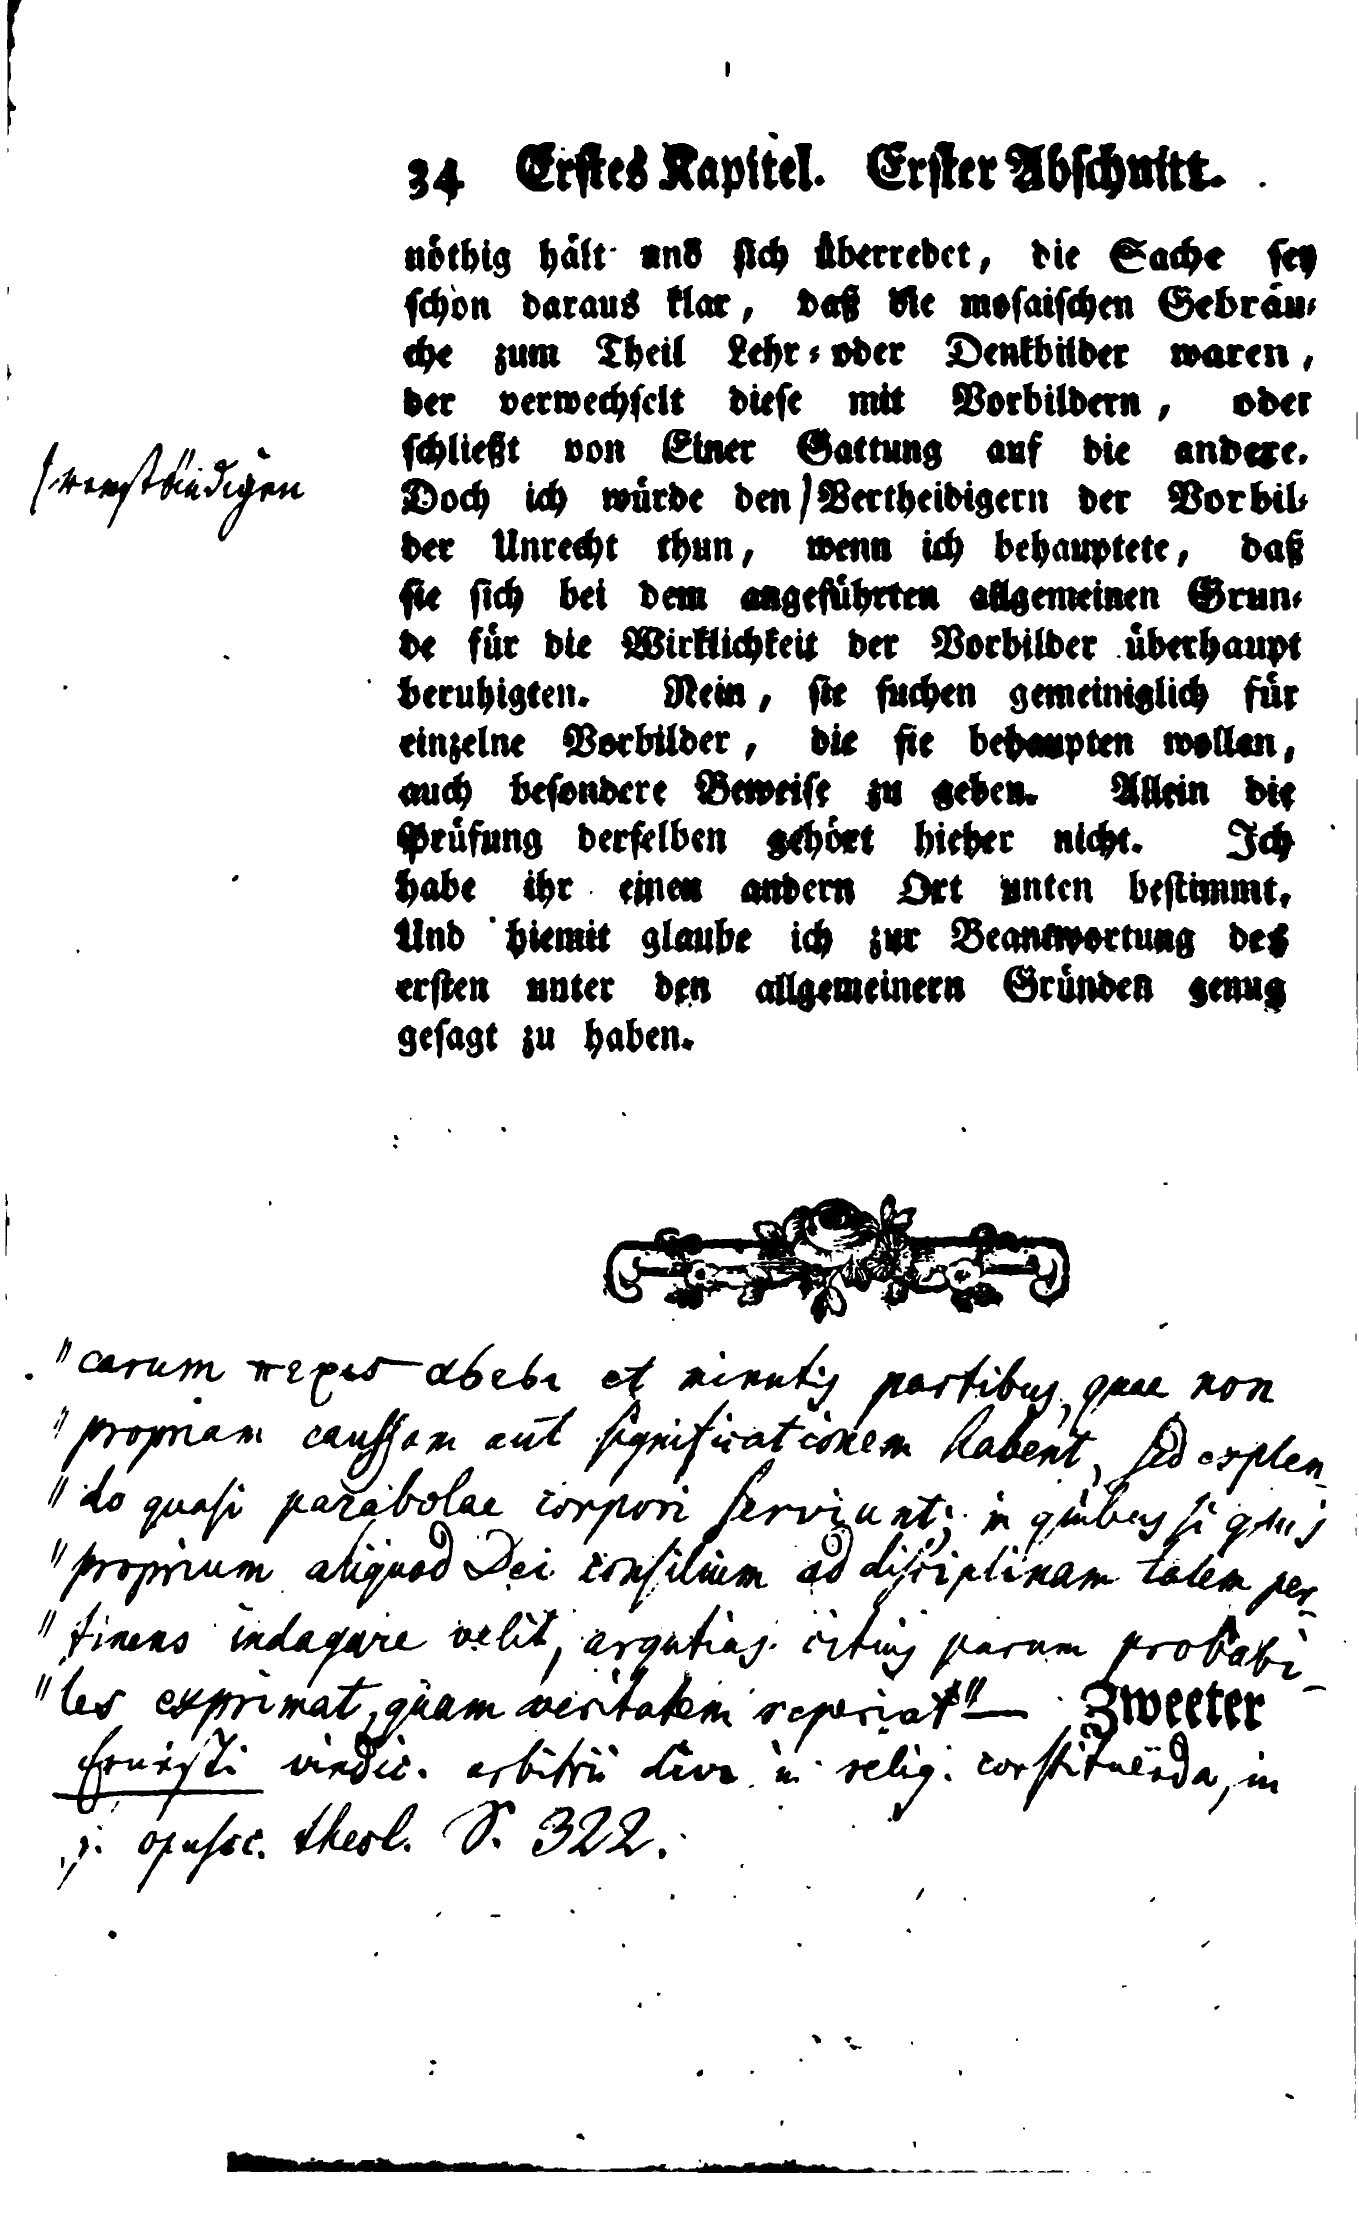 34 Erstes Kapitel. Erster Abschnitt.
nöthig hält und sich überredet, die Sache sey
schon daraus klar, daß die mosaischen Gebräu-
che zum Theil Lehr- oder Denkbilder waren,
der verwechselt diese mit Vorbildern, oder
schließt von Einer Gattung auf die andere.
Doch ich würde den) Vertheidigern der Vorbil-
(verständigen
der Unrecht thun, wenn ich behauptete, daß
sie sich bei dem angeführten allgemeinen Grun-
de für die Wirklichkeit der Vorbilder überhaupt
beruhigten. Nein, sie suchen gemeiniglich für
einzelne Vorbilder, die sie behaupten wollen,
auch besondere Beweise zu geben. Allein die
Prüfung derselben gehört hieher nicht. Ich
habe ihr einen andern Ort unten bestimmt.
Und hiemit glaube ich zur Beantwortung des
ersten unter den allgemeinern Gründen genug
gesagt zu haben.
"carum et minutis partibus, quae non
"propriam caussam aut significationem habent, sed explen-
"do quasi parabolae corpori serviunt; in quibus si quis
"proprium aliquod Dei consilium ad disciplinam talem per-
"tinens indagare velit, argutias citius parum probabi-
"les exprimat, quam veritatem reperiat" —
Zweeter
Ernesti vindic. arbitrii divi in relig. constituenda, in
s. opusc. theol. S. 322.